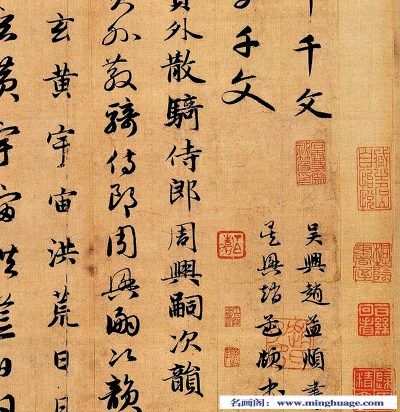 千文
吳興趙孟頫書
千文
吳興趙孟頫書
外散騎侍郎周興嗣次韻
外散騎侍郎周興嗣次韻
玄黃宇宙洪荒日月
玄黃宇宙洪荒日月
名画阁：www.minghuage.com